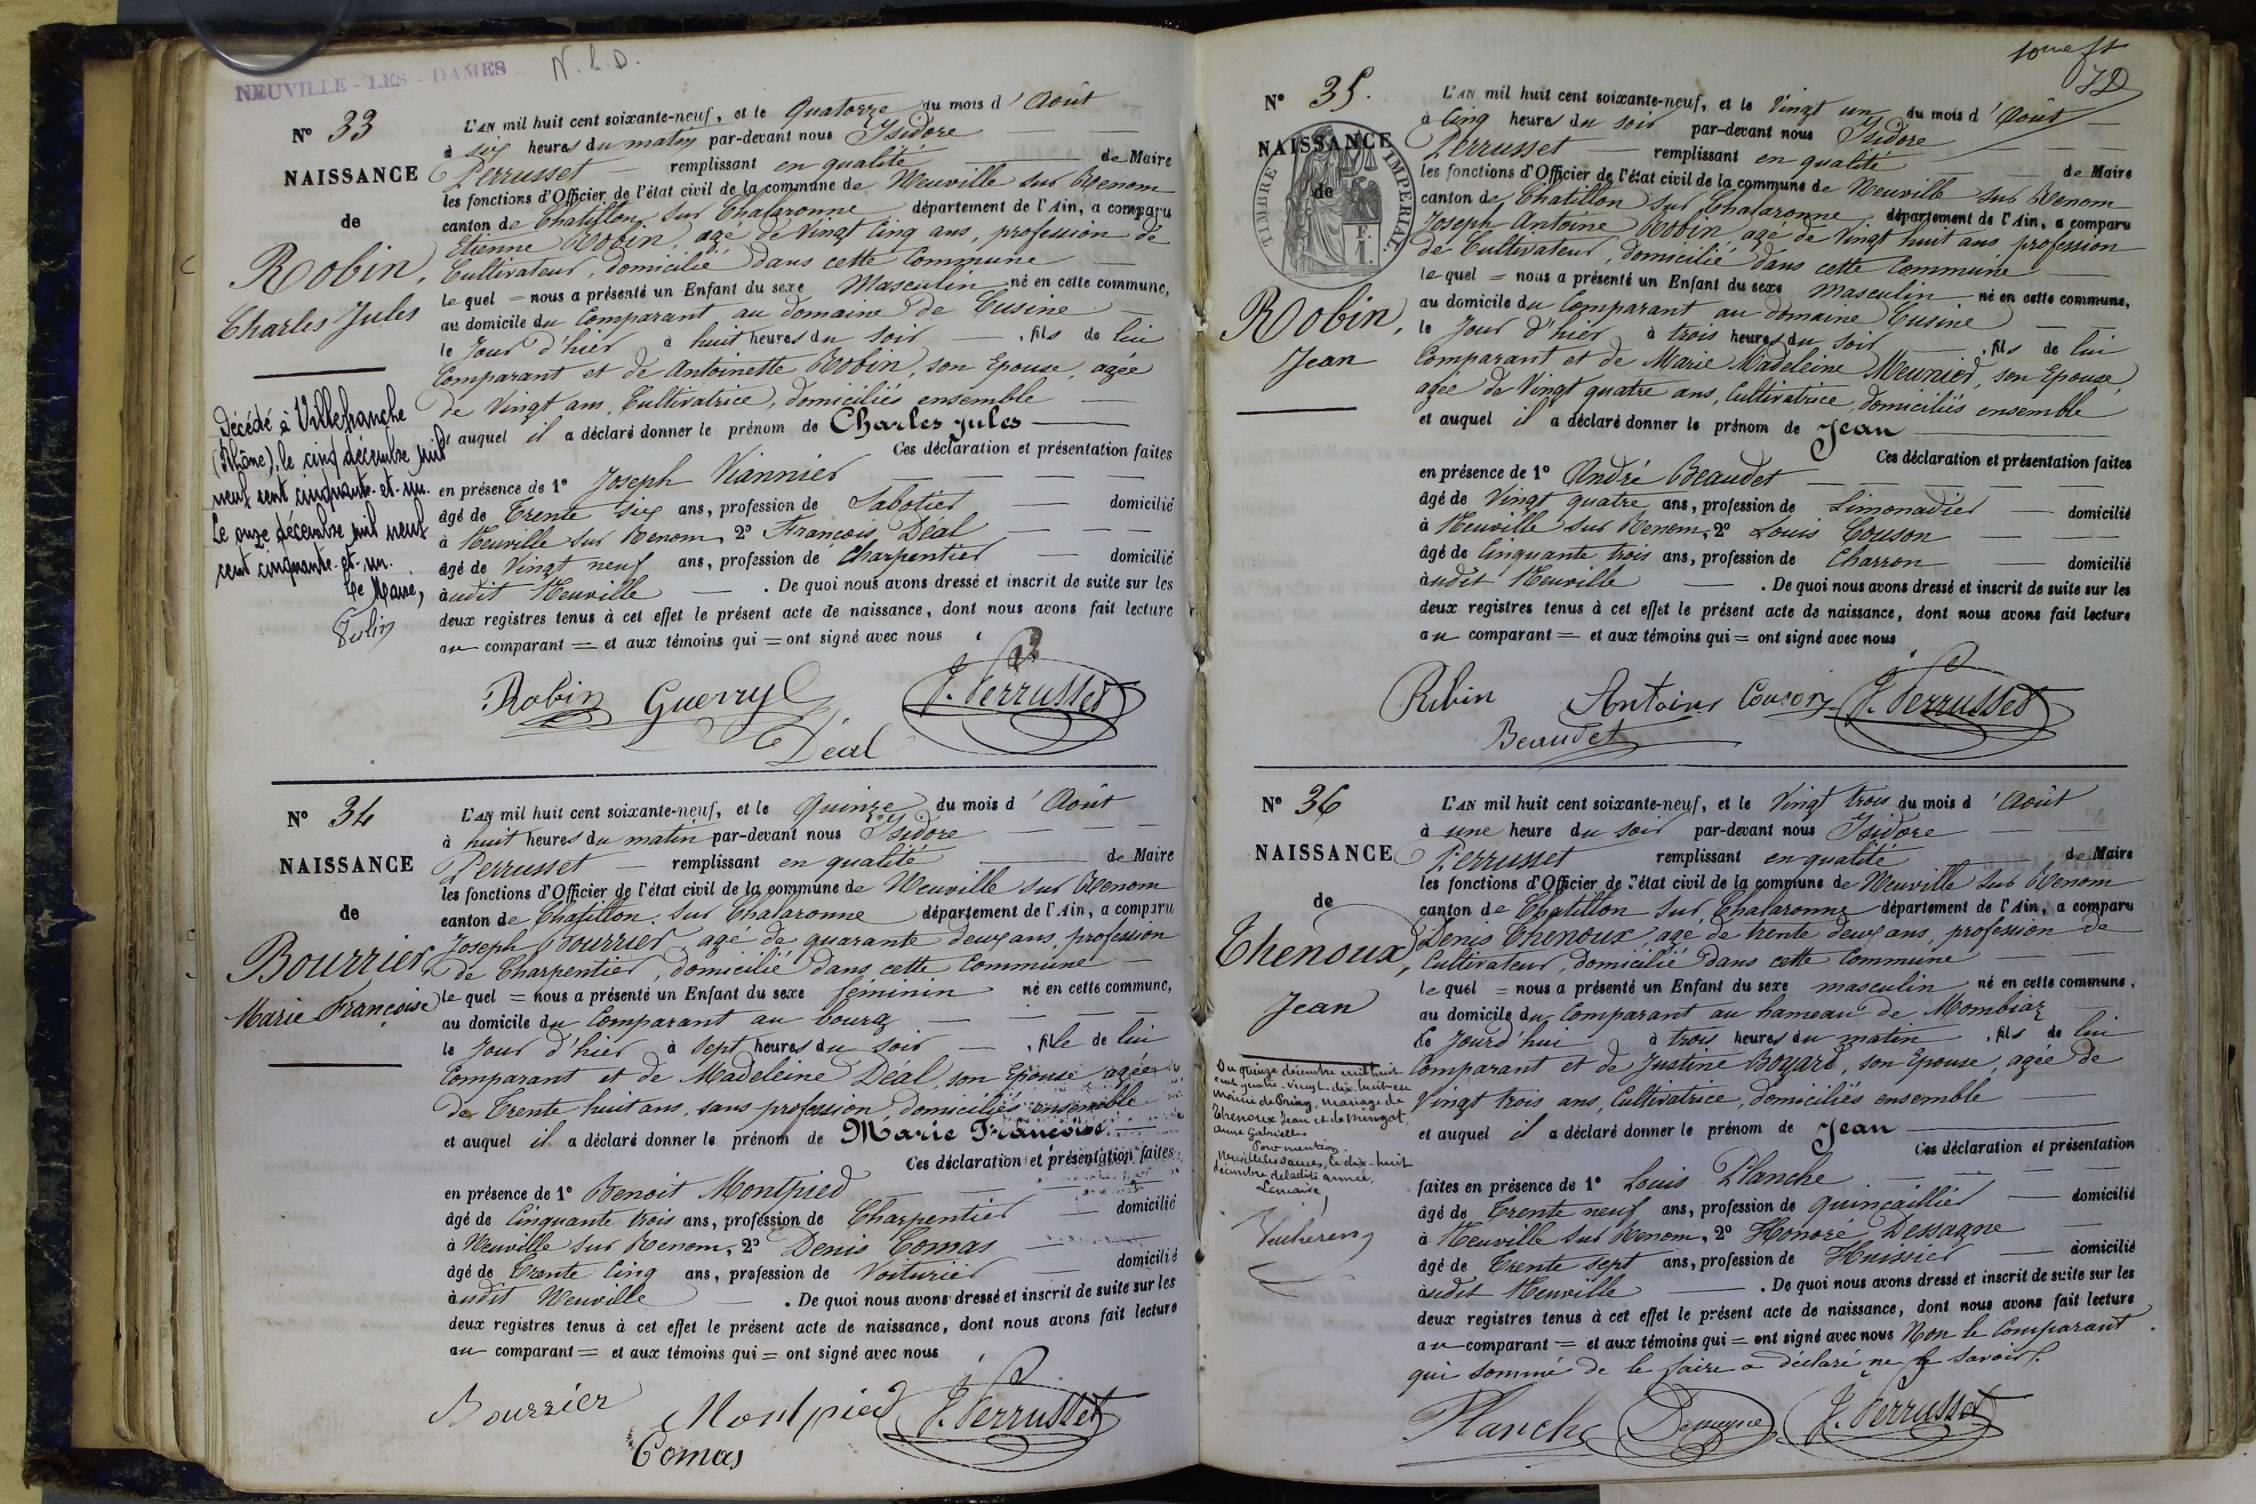 NEUVILLE-LES-DAMES
N. L. D.
N° 33
NAISSANCE
de
Robin,
Charles Jules
Décédé à Villefranche
(Rhône), le cinq décembre mil
neuf cent cinquante-et-un.
Le onze décembre mil neuf
cent cinquante-et-un.
Le Maire,
L'AN mil huit cent soixante-neuf, et le Quatorze du mois d'Août
à six heures du matin par-devant nous Isidore
Perrusset remplissant en qualité de Maire
les fonctions d'Officier de l'état civil de la commune de Neuville sur Renom
canton de Chatillon sur Chalaronne département de l'Ain, a comparu
Etienne Robin, agé de Vingt cinq ans, profession de
Cultivateur, domicilié dans cette Commune
le quel = nous a présenté un Enfant du sexe Masculin né en cette commune,
au domicile du Comparant au domaine de Cusine
le Jour d'hier à huit heures du soir, fils de lui
Comparant et de Antoinette Robin, son Epouse, agée
de Vingt ans, Cultivatrice, domiciliés ensemble
et auquel il a déclaré donner le prénom de Charles Jules
Ces déclaration et présentation faites
en présence de 1° Joseph Viannier
âgé de Trente six ans, profession de Sabotier domicilié
à Neuville sur Renom, 2° François Déal
âgé de Vingt neuf ans, profession de Charpentier domicilié
audit Neuville. De quoi nous avons dressé et inscrit de suite sur les
deux registres tenus à cet effet le présent acte de naissance, dont nous avons fait lecture
au comparant = et aux témoins qui = ont signé avec nous
Robin Guerry J. Perrusset
Déal
N° 34
NAISSANCE
de
Bourrier,
Marie Françoise
L'AN mil huit cent soixante-neuf, et le Quinze du mois d'Août
à huit heures du matin par-devant nous Isidore
Perrusset remplissant en qualité de Maire
les fonctions d'Officier de l'état civil de la commune de Neuville sur Renom
canton de Chatillon sur Chalaronne département de l'Ain, a comparu
Joseph Bourrier, agé de quarante deux ans, profession
de Charpentier, domicilié dans cette Commune
le quel = nous a présenté un Enfant du sexe féminin né en cette commune,
au domicile du Comparant au bourg
le Jour d'hier à sept heures du soir, fille de lui
Comparant et de Madeleine Deal, son Epouse agée
de Trente huit ans, sans profession, domiciliés ensemble
et auquel il a déclaré donner le prénom de Marie Françoise
Ces déclaration et présentation faites
en présence de 1° Benoit Montpied
âgé de Cinquante trois ans, profession de Charpentier domicilié
à Neuville sur Renom, 2° Denis Comas
âgé de Trente cinq ans, profession de Voiturier domicilié
audit Neuville. De quoi nous avons dressé et inscrit de suite sur les
deux registres tenus à cet effet le présent acte de naissance, dont nous avons fait lecture
au comparant = et aux témoins qui = ont signé avec nous
Bourrier Montpied J. Perrusset
Comas
N° 35.
NAISSANCE
de
TIMBRE IMPERIAL.
Robin,
Jean
L'AN mil huit cent soixante-neuf, et le Vingt un du mois d'Août
à Cinq heures du soir par-devant nous Isidore
Perrusset remplissant en qualité de Maire
les fonctions d'Officier de l'état civil de la commune de Neuville sur Renom
canton de Chatillon sur Chalaronne, département de l'Ain, a comparu
Joseph Antoine Robin, agé de Vingt huit ans, profession
de Cultivateur, domicilié dans cette Commune
le quel = nous a présenté un Enfant du sexe masculin né en cette commune,
au domicile du Comparant au domaine Cusine
le Jour d'hier à trois heures du soir, fils de lui
Comparant et de Marie Madeleine Meunier, son Epouse,
agée de Vingt quatre ans, Cultivatrice, domiciliés ensemble
et auquel il a déclaré donner le prénom de Jean
Ces déclaration et présentation faites
en présence de 1° André Beaudet
âgé de Vingt quatre ans, profession de Limonadier domicilié
à Neuville sur Renom, 2° Louis Couson
âgé de Cinquante trois ans, profession de Charron domicilié
audit Neuville. De quoi nous avons dressé et inscrit de suite sur les
deux registres tenus à cet effet le présent acte de naissance, dont nous avons fait lecture
au comparant = et aux témoins qui = ont signé avec nous
Robin Antoine Couson J. Perrusset
Beaudet
N° 36
NAISSANCE
de
Thenoux,
Jean
Du quinze décembre mil huit
cent quatre-vingt-dix-huit en
mairie de mariage de
Thenoux Jean et de
Anne Gabrielle.
Pour mention.
Neuville les Dames, le dix-huit
décembre de ladite année,
Le maire,
L'AN mil huit cent soixante-neuf, et le Vingt trois du mois d'Août
à une heure du soir par-devant nous Isidore
Perrusset remplissant en qualité de Maire
les fonctions d'Officier de l'état civil de la commune de Neuville sur Renom
canton de Chatillon sur Chalaronne département de l'Ain, a comparu
Denis Thenoux, agé de trente deux ans, profession de
Cultivateur, domicilié dans cette Commune
le quel = nous a présenté un Enfant du sexe masculin né en cette commune,
au domicile du Comparant au hameau de Mombiaz
le Jourd'hui à trois heures du matin, fils de lui
Comparant et de Justine Boyard, son Epouse, agée de
Vingt trois ans, Cultivatrice, domiciliés ensemble
et auquel il a déclaré donner le prénom de Jean
Ces déclaration et présentation
faites en présence de 1° Louis Planche
âgé de Trente neuf ans, profession de quincaillier domicilié
à Neuville sur Renom, 2° Honoré Dessagne
âgé de Trente sept ans, profession de Huissier domicilié
audit Neuville. De quoi nous avons dressé et inscrit de suite sur les
deux registres tenus à cet effet le présent acte de naissance, dont nous avons fait lecture
au comparant = et aux témoins qui = ont signé avec nous Non le Comparant
qui sommé de le faire a déclaré ne le savoir.
Planche J. Perrusset